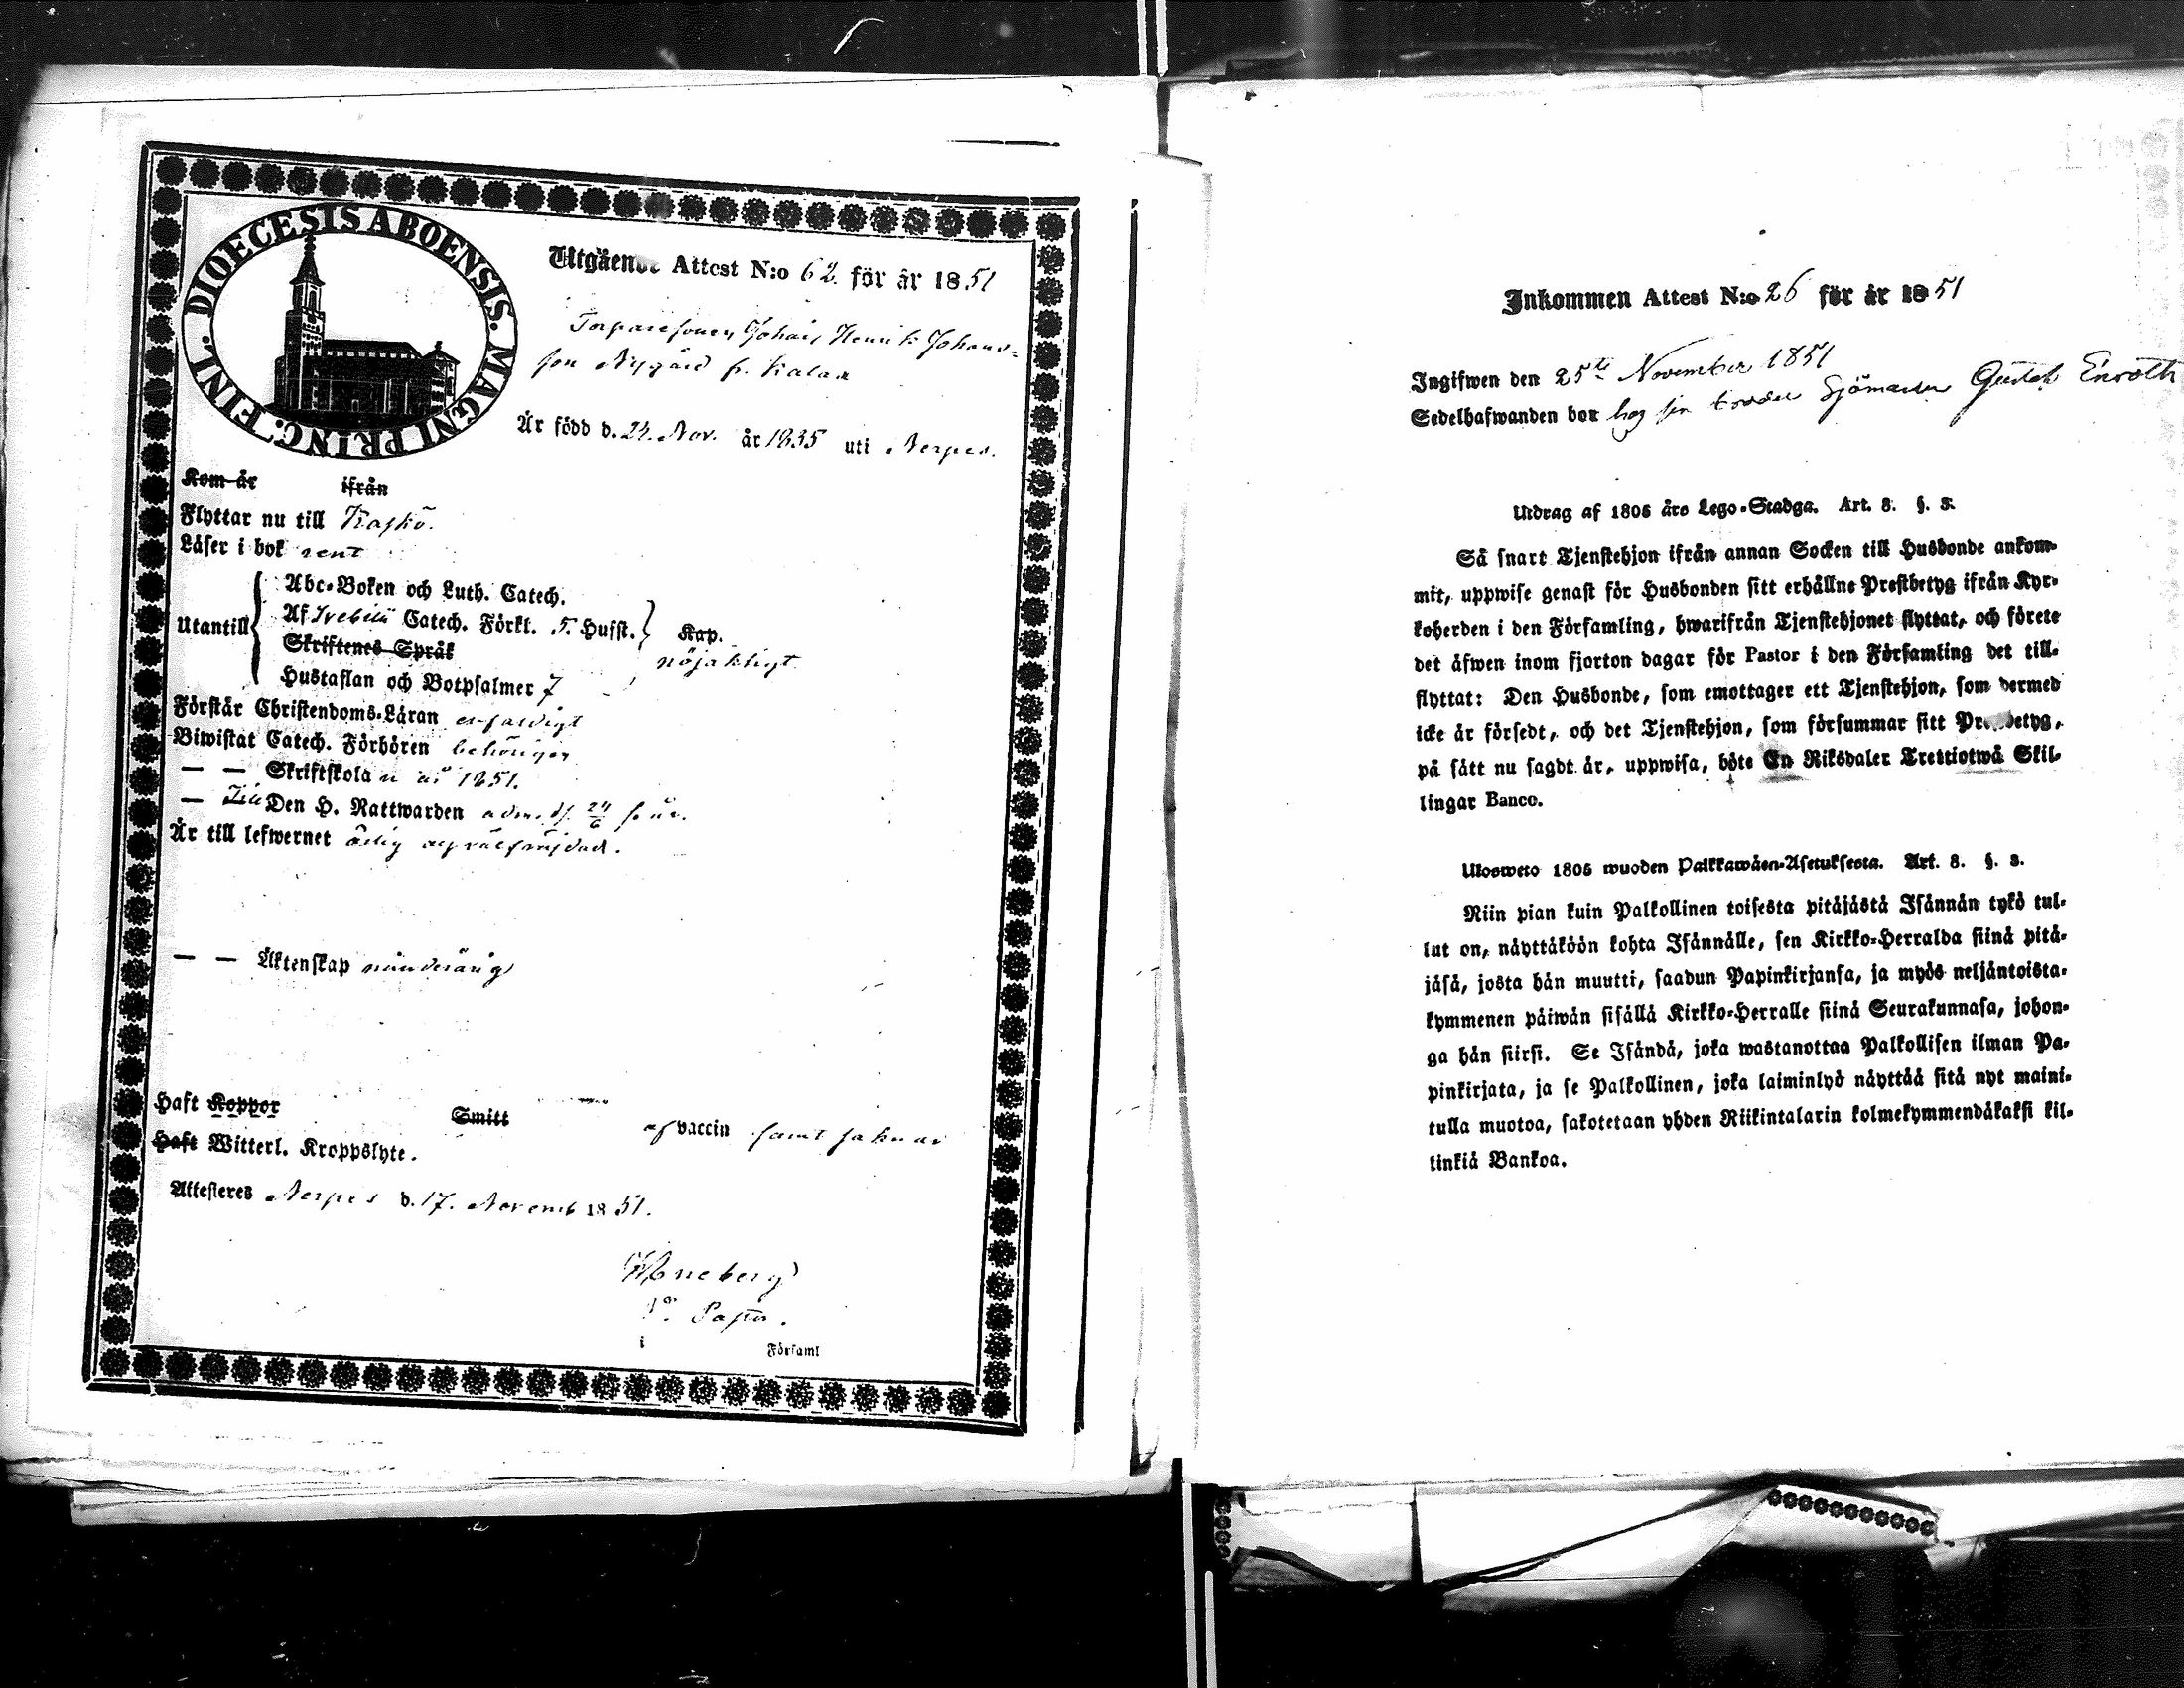 DIOECESIS ABOENSIS. MAGNI PRINC. FINL.
Utgående Attest N:o 62 för år 1851
Torparesonen Johan Henrik Johans=
son Nygård fr. Kalax
Är född d. 24. Nov. år 1835 uti Nerpes.
Kom år ifrån
Flyttar nu till Kaskö.
Läser i bok rent
Utantill
Abc-Boken och Luth. Catech.
Af Svebilii Catech. Förkl. 5. Hufst.
Skriftenes Språk
Kap.
nöjaktigt
Hustaflan och Botpsalmer 7
Förstår Christendoms-Läran enfaldigt
Biwistat Catech. Förhören behörigen
— — Skriftskola år 1851.
— Den H. Nattwarden adm. d. 24/6 s. år.
Är till lefwernet ärlig och välfräjdad.
— — Äktenskap minderårig
Haft Koppor Smitt af vaccin samt
Haft Witterl. Kroppslyte.
Attesteres Nerpes d. 17. Novemb 1851.
Pastor.
Församl
Inkommen Attest N:o 26 för år 1851
Ingifwen den 25te November 1851
Sedelhafwanden bor hos sin broder Sjöman Enroth
Utdrag af 1805 års Lego-Stadga. Art. 8. §. 3.
Så snart Tjenstehjon ifrån annan Socken till Husbonde ankom-
mit, uppwise genast för Husbonden sitt erhållne Prestbetyg ifrån Kyr-
koherden i den Församling, hwarifrån Tjenstehjonet flyttat, och förete
det äfwen inom fjorton dagar för Pastor i den Församling det till-
flyttat: Den Husbonde, som emottager ett Tjenstehjon, som dermed
icke är försedt, och det Tjenstehjon, som försummar sitt Prestbetyg,
på sätt nu sagdt är, uppwisa, böte En Riksdaler Trettiotwå Skil-
lingar Banco.
Ulosweto 1805 wuoden Palkkawäen-Asetuksesta. Art. 8. §. 3.
Niin pian kuin Palkollinen toisesta pitäjästä Isännän tykö tul-
lut on, näyttäköön kohta Isännälle, sen Kirkko-Herralda siinä pitä-
jäsä, josta hän muutti, saadun Papinkirjansa, ja myös neljäntoista-
kymmenen päiwän sisällä Kirkko-Herralle siinä Seurakunnasa, johon-
ga hän siirsi. Se Isändä, joka wastanottaa Palkollisen ilman Pa-
pinkirjata, ja se Palkollinen, joka laiminlyö näyttää sitä nyt maini-
tulla muotoa, sakotetaan yhden Riikintalarin kolmekymmendäkaksi kil-
linkiä Bankoa.